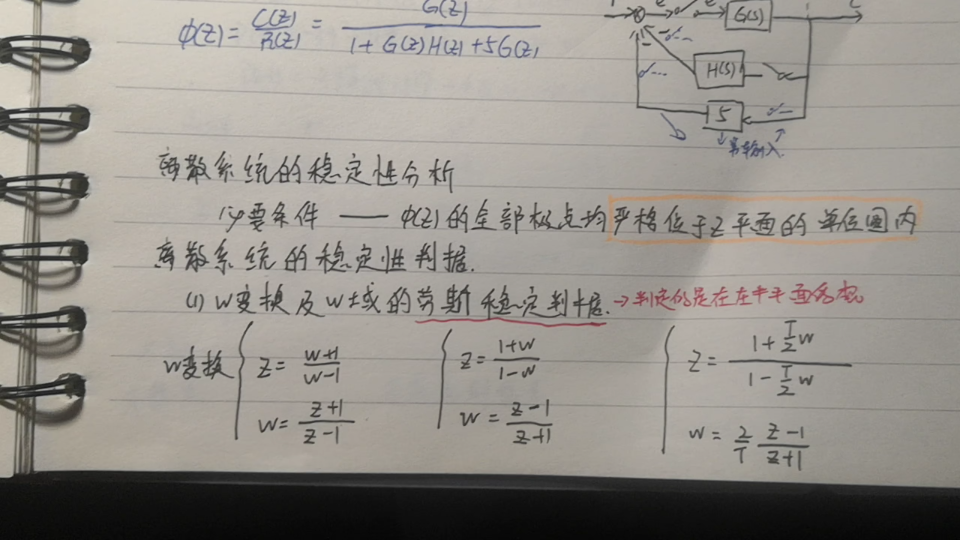 Φ(z) = C(z)/R(z) = G(z)/(1 + G(z)H(z) + 5G(z))
e e G(s) C
H(s)
5
离散系统的稳定性分析
要条件 —— Φ(z)的全部极点均严格位于Z平面的单位圆内
离散系统的稳定性判据.
(1) W变换及W域的劳斯稳定判据. →判定的是在左半平面
W变换 { z = (w+1)/(w-1) { z = (1+w)/(1-w) { z = (1+(T/2)w)/(1-(T/2)w)
w = (z+1)/(z-1) w = (z-1)/(z+1) w = (2/T) (z-1)/(z+1)